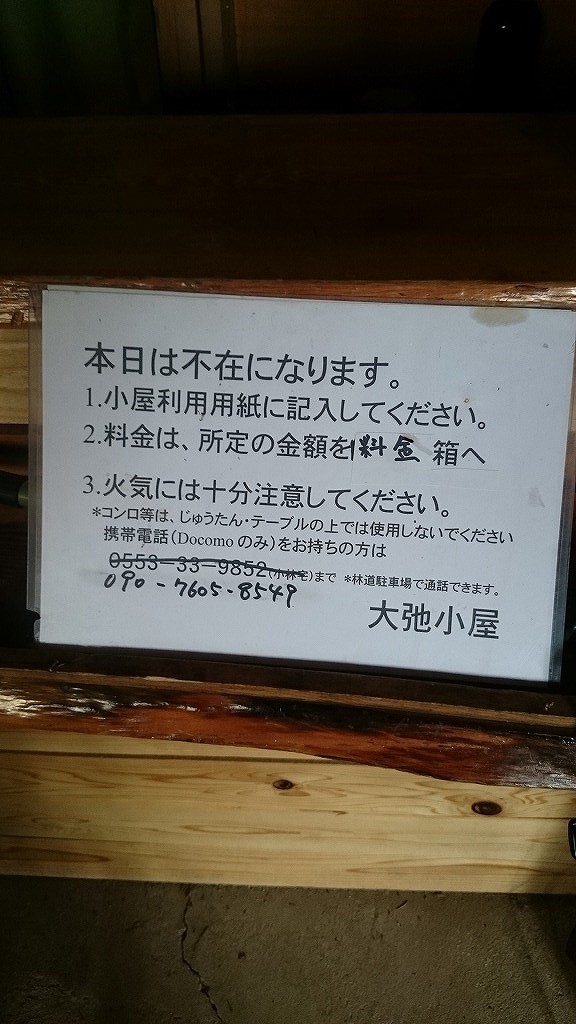 本日は不在になります。
1.小屋利用用紙に記入してください。
2.料金は、所定の金額を料金箱へ
3.火気には十分注意してください。
*コンロ等は、じゅうたん・テーブルの上では使用しないでください
携帯電話(Docomoのみ)をお持ちの方は
0553-33-9852(小林宅)まで *林道駐車場で通話できます。
090-7605-8549
大弛小屋